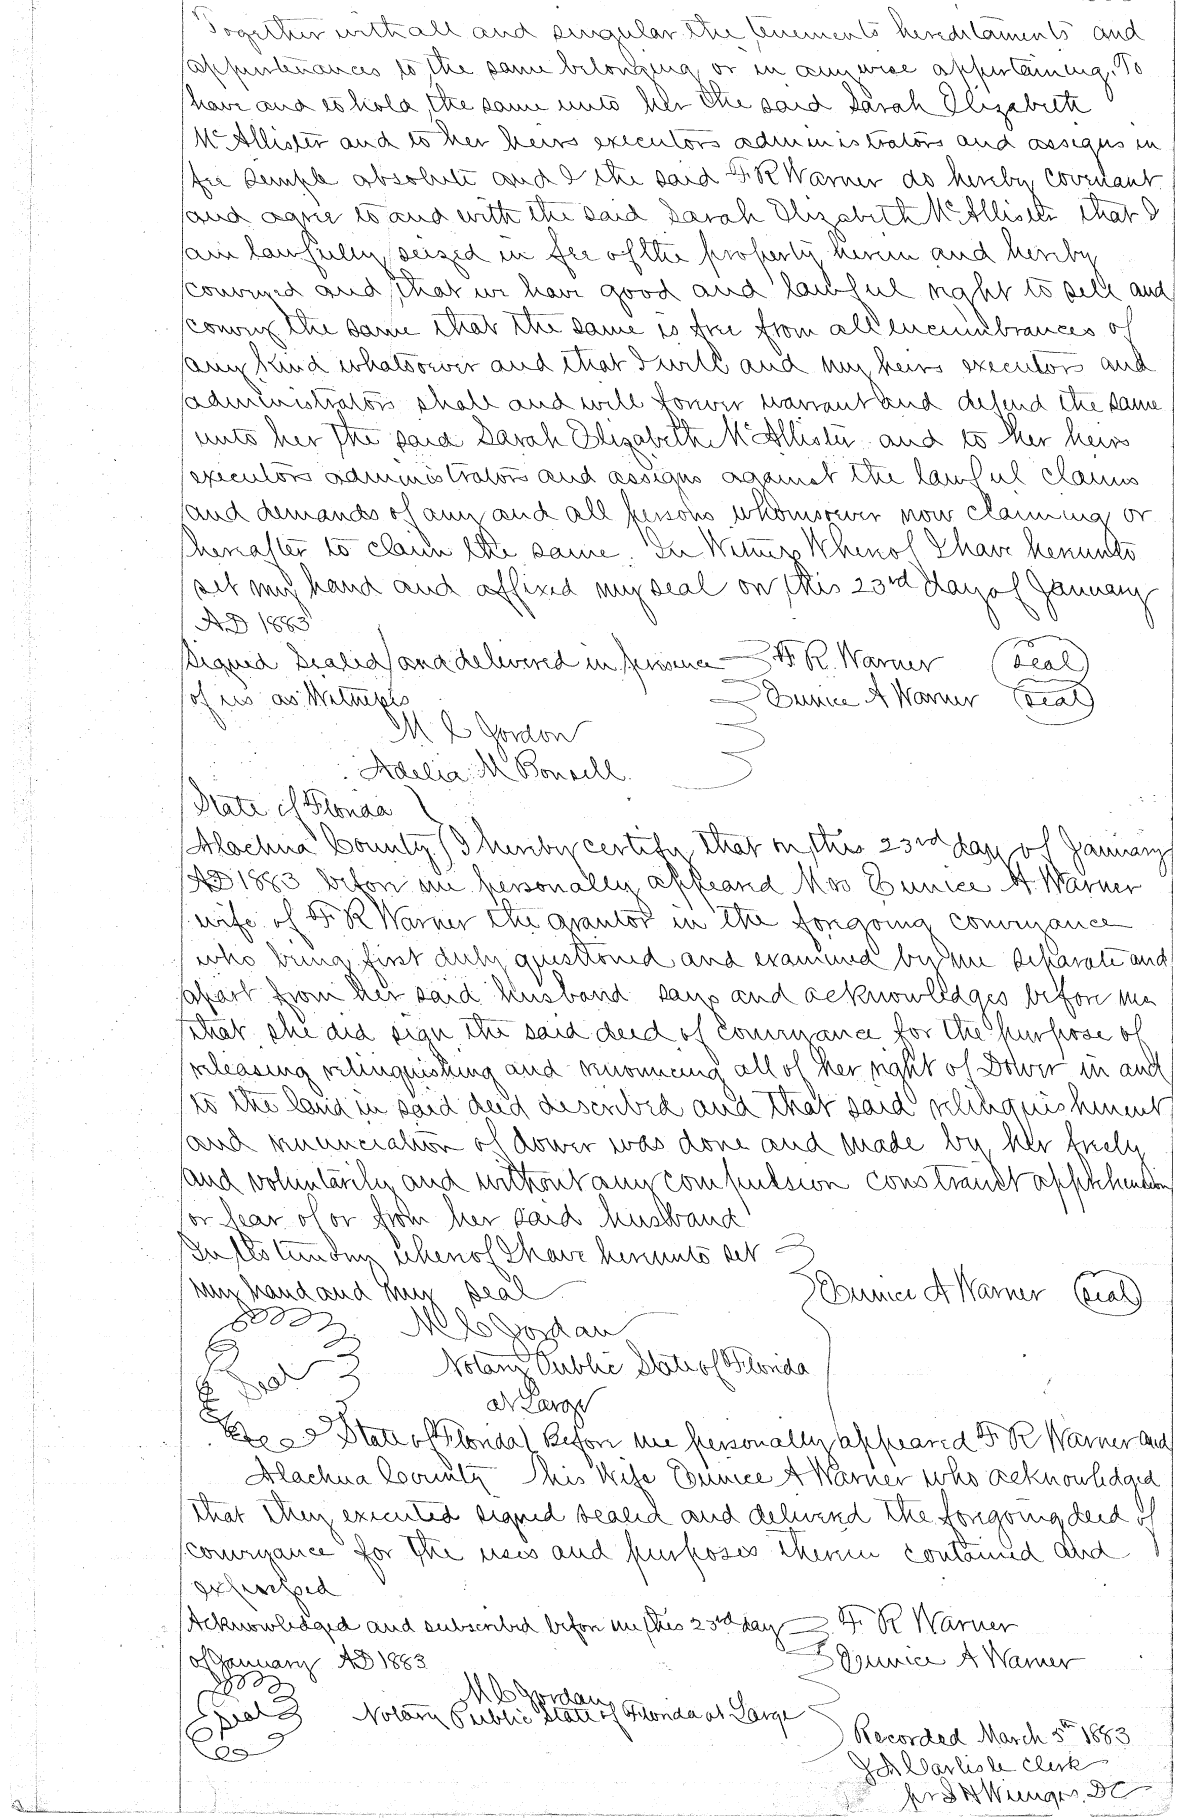 Together with all and singular the tenements hereditaments and
appurtenances to the same belonging or in anywise appertaining. To
have and to hold the same unto her the said Sarah Elizabeth
McAllister and to her heirs executors administrators and assigns in
fee simple absolute and I the said F R Warner do hereby covenant
and agree to and with the said Sarah Elizabeth McAllister that I
am lawfully seized in fee of the property herein and hereby
conveyed and that we have good and lawful right to sell and
convey the same that the same is free from all encumbrances of
any kind whatsoever and that I will and my heirs executors and
administrators shall and will forever warrant and defend the same
unto her the said Sarah Elizabeth McAllister and to her heirs
executors administrators and assigns against the lawful claims
and demands of any and all persons whomsoever now claiming or
hereafter to claim the same. In Witness Whereof I have hereunto
set my hand and affixed my seal on this 23rd day of January
AD 1883
Signed Sealed and delivered in presence F R. Warner Seal
of us as Witness Eunice A Warner Seal
M C Gordon
Adelia M Bonsell
State of Florida
Alachua County I hereby certify that on this 23rd day of January
AD 1883 before me personally appeared Mrs Eunice A. Warner
wife of F R Warner the grantor in the foregoing conveyance
who being first duly questioned and examined by me separate and
apart from her said husband says and acknowledges before me
that she did sign the said deed of conveyance for the purpose of
releasing relinquishing and renouncing all of her right of Dower in and
to the land in said deed described and that said relinquishment
and renunciation of dower was done and made by her freely
and voluntarily and without any compulsion constraint apprehension
or fear of or from her said husband
In testimony whereof I have hereunto set
my hand and my seal Eunice A Warner Seal
M C Jordan
Seal Notary Public State of Florida
at Large
State of Florida Before me personally appeared F R Warner and
Alachua County his Wife Eunice A Warner who acknowledged
that they executed signed sealed and delivered the foregoing deed of
conveyance for the uses and purposes therein contained and
expressed
Acknowledged and subscribed before me this 23rd day F R Warner
of January AD 1883 Eunice A Warner
M C Jordan
Seal Notary Public State of Florida at Large
Recorded March 5th 1883
J A Carlisle Clerk
pr S H Wienges. DC